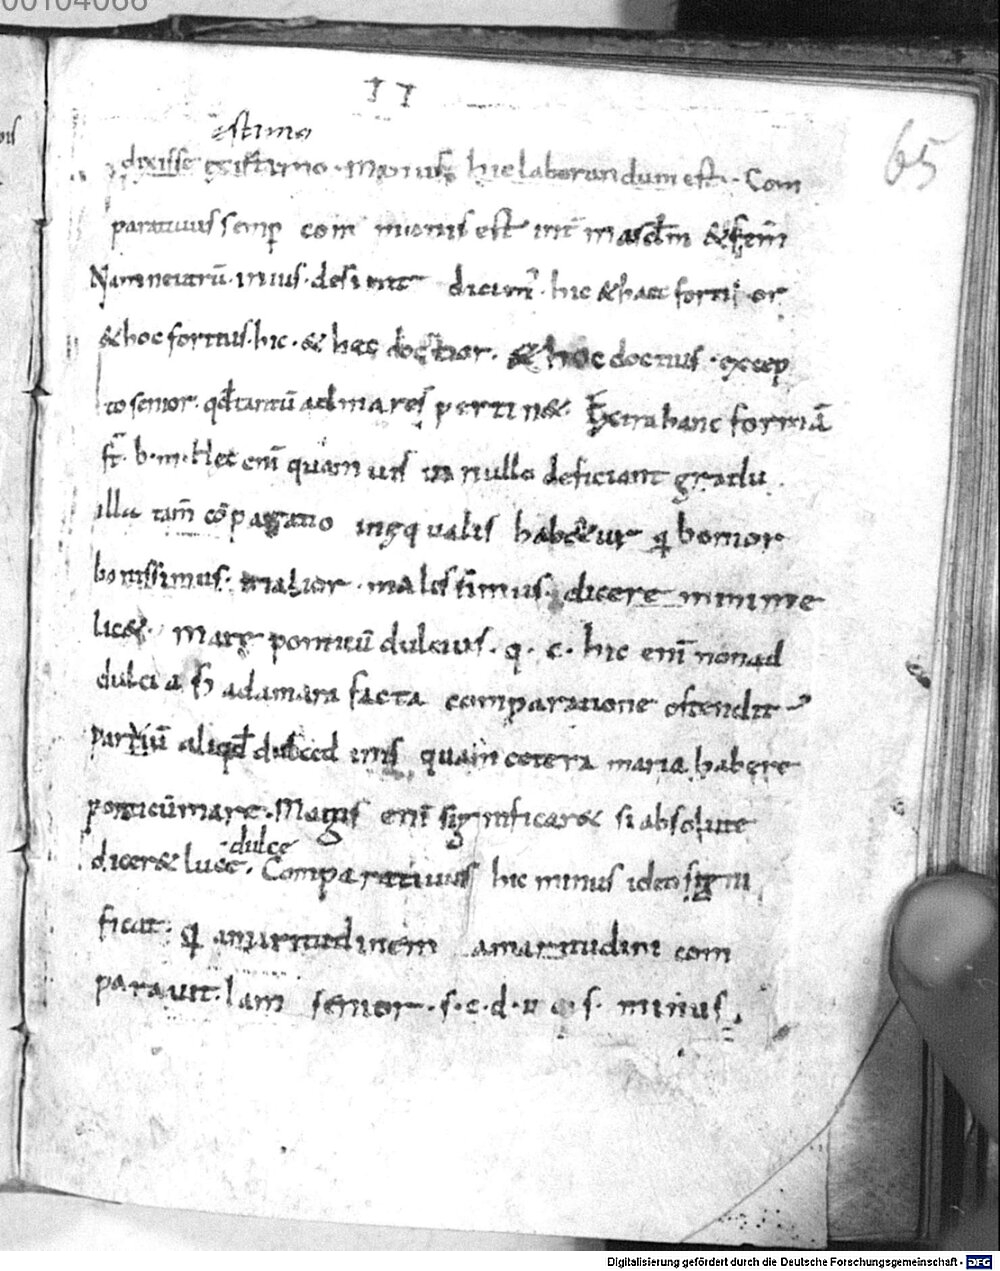 00104066
65
estimo
dixisse existimo · Manius hic laborandum est · Com
paratiuus semp com munis est int mascł̄m & fem̄
Nam neutrū · in ius · desinit dicim̄ · hic & haec fortior
& hoc fortius · hic · & hec doctior · & hoc doctius · excep
to senior · qđ tantū ad mares pertin& · Extra hanc formā
st̄ · b · m · Hec eni quam uis in nullo deficiant gradu
illa tam̄ cōparatio inęqualis hab&ur q bonior
bonissimus · malior · malissimus · dicere minime
lic& · mare ponticū dulcius · q · c · hic enī non ad
dulcia sȝ ad amara facta comparatione ostendit
partiū aliqđ dulced inis quam cetera maria habere
ponticū mare · Magis enī significar& si absolute
dulce
dicer& luce · Comparatiuus hic minus ideo signi
ficat · q amaritudinem amaritudini com
parauit · Iam senior · s · c · d · u o · s · minus ·
Digitalisierung gefördert durch die Deutsche Forschungsgemeinschaft - DFG